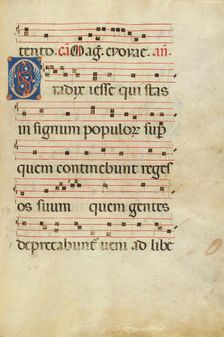 tento. cā Mag̃. evovae. an̄.
O radix iesse qui stas
in signum populor sup̄
quem continebunt reges
os suum quem gentes
deprecabunt᷑ veni ad libe